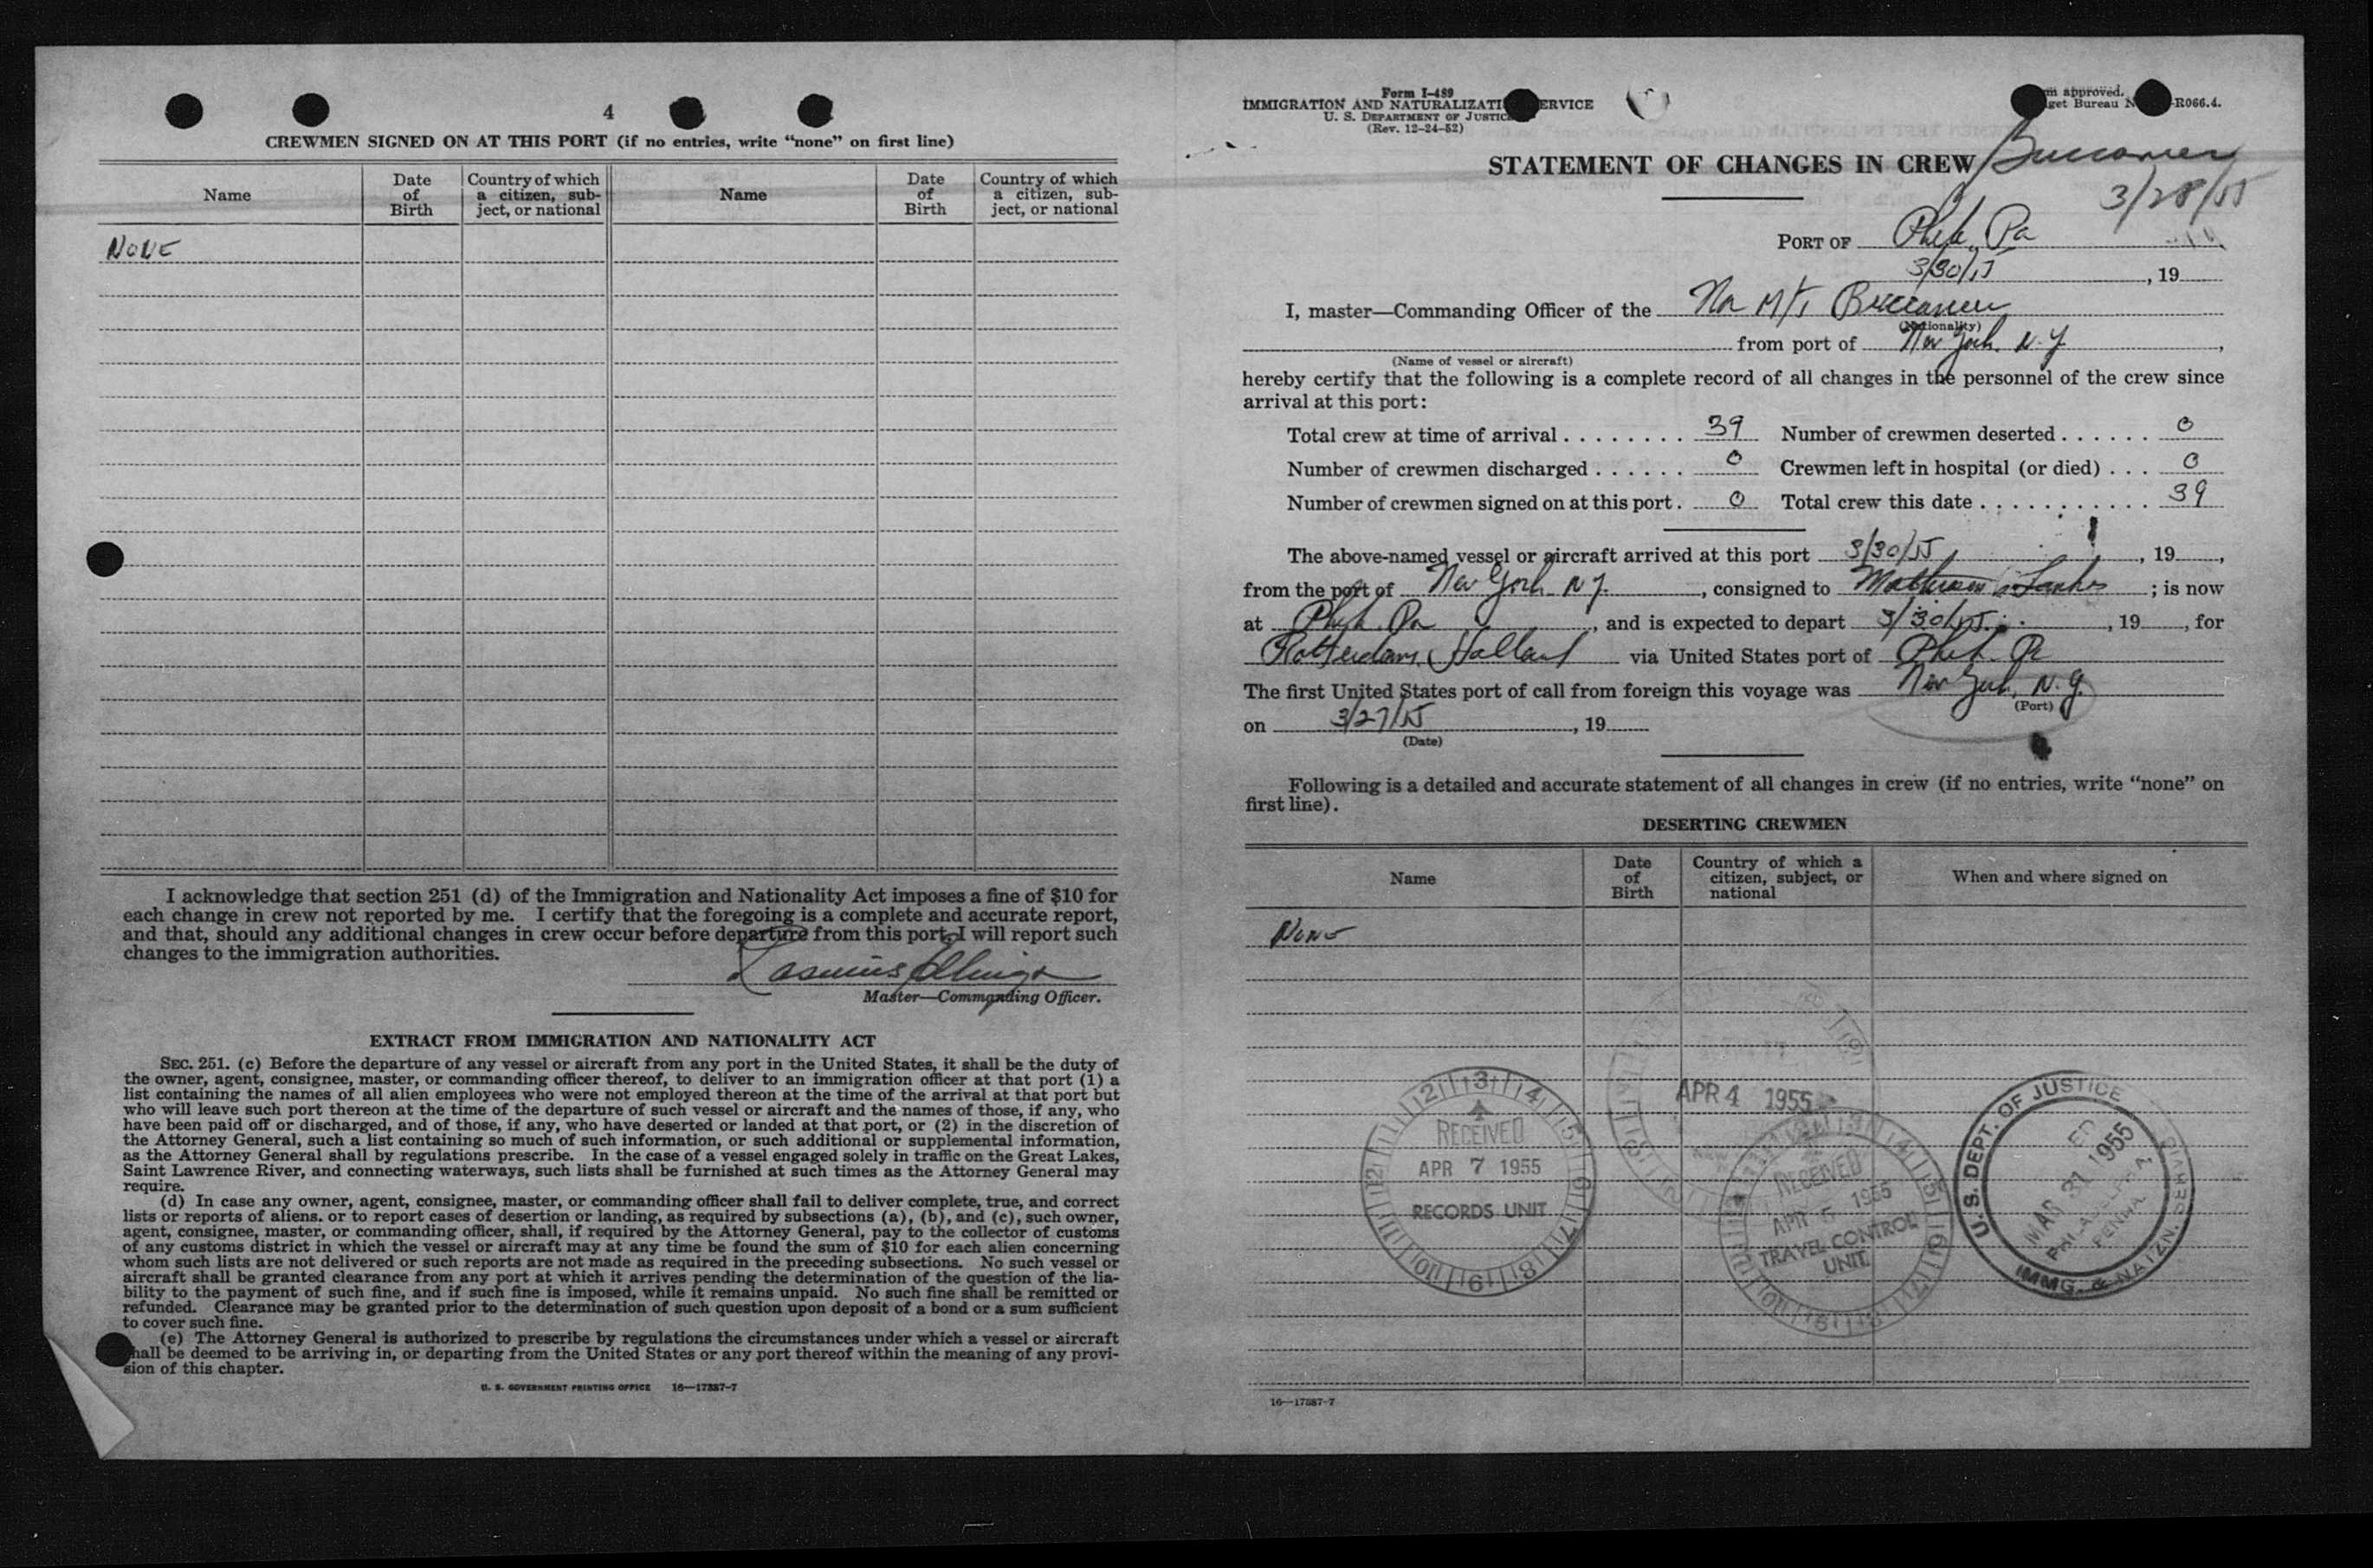 4
CREWMEN SIGNED ON AT THIS PORT (if no entries, write “none” on first line)
Name
Date of Birth
Country of which a citizen, sub-
ject, or national
Name
Date of Birth
Country of which a citizen, sub-
ject, or national
NONE
I acknowledge that section 251 (d) of the Immigration and Nationality Act imposes a fine of $10 for
each change in crew not reported by me. I certify that the foregoing is a complete and accurate report,
and that, should any additional changes in crew occur before departure from this port, I will report such
changes to the immigration authorities.
Master—Commanding Officer.
EXTRACT FROM IMMIGRATION AND NATIONALITY ACT
SEC. 251. (c) Before the departure of any vessel or aircraft from any port in the United States, it shall be the duty of
the owner, agent, consignee, master, or commanding officer thereof, to deliver to an immigration officer at that port (1) a
list containing the names of all alien employees who were not employed thereon at the time of the arrival at that port but
who will leave such port thereon at the time of the departure of such vessel or aircraft and the names of those, if any, who
have been paid off or discharged, and of those, if any, who have deserted or landed at that port, or (2) in the discretion of
the Attorney General, such a list containing so much of such information, or such additional or supplemental information,
as the Attorney General shall by regulations prescribe. In the case of a vessel engaged solely in traffic on the Great Lakes,
Saint Lawrence River, and connecting waterways, such lists shall be furnished at such times as the Attorney General may
require.
(d) In case any owner, agent, consignee, master, or commanding officer shall fail to deliver complete, true, and correct
lists or reports of aliens. or to report cases of desertion or landing, as required by subsections (a), (b), and (c), such owner,
agent, consignee, master, or commanding officer, shall, if required by the Attorney General, pay to the collector of customs
of any customs district in which the vessel or aircraft may at any time be found the sum of $10 for each alien concerning
whom such lists are not delivered or such reports are not made as required in the preceding subsections. No such vessel or
aircraft shall be granted clearance from any port at which it arrives pending the determination of the question of the lia-
bility to the payment of such fine, and if such fine is imposed, while it remains unpaid. No such fine shall be remitted or
refunded. Clearance may be granted prior to the determination of such question upon deposit of a bond or a sum sufficient
to cover such fine.
(e) The Attorney General is authorized to prescribe by regulations the circumstances under which a vessel or aircraft
hall be deemed to be arriving in, or departing from the United States or any port thereof within the meaning of any provi-
sion of this chapter.
U. S. GOVERNMENT PRINTING OFFICE 16—17387-7
Form I-489
IMMIGRATION AND NATURALIZATI ERVICE
U. S. DEPARTMENT OF JUSTIC
(Rev. 12-24-52)
m approved.
get Bureau N -R066.4.
STATEMENT OF CHANGES IN CREW Buccaneer
3/28/55
PORT OF Phila, Pa
3/30/55, 19
I, master—Commanding Officer of the Nor M/T Buccaneer
(Nationality)
from port of New York, N.Y.,
(Name of vessel or aircraft)
hereby certify that the following is a complete record of all changes in the personnel of the crew since
arrival at this port:
Total crew at time of arrival . . . . . . . . 39 Number of crewmen deserted . . . . . . 0
Number of crewmen discharged . . . . . . 0 Crewmen left in hospital (or died) . . . 0
Number of crewmen signed on at this port . 0 Total crew this date . . . . . . . . . . . 39
The above-named vessel or aircraft arrived at this port 3/30/55, 19,
from the port of New York N.Y., consigned to ; is now
at Phila. Pa, and is expected to depart 3/30/55, 19, for
Rotterdam, Holland via United States port of Phila. Pa
The first United States port of call from foreign this voyage was New York, N.Y.
(Port)
on 3/27/55, 19
(Date)
Following is a detailed and accurate statement of all changes in crew (if no entries, write “none” on
first line).
DESERTING CREWMEN
Name
Date of Birth
Country of which a citizen, subject, or national
When and where signed on
None
APR 4 1955
RECEIVED
APR 7 1955
RECORDS UNIT
RECEIVED
APR 5 1955
TRAVEL CONTROL
UNIT
U. S. DEPT. OF JUSTICE
MAR 31 1955
PHILADELPHIA
PENNA.
IMMG. & NATZN.
16—17387-7